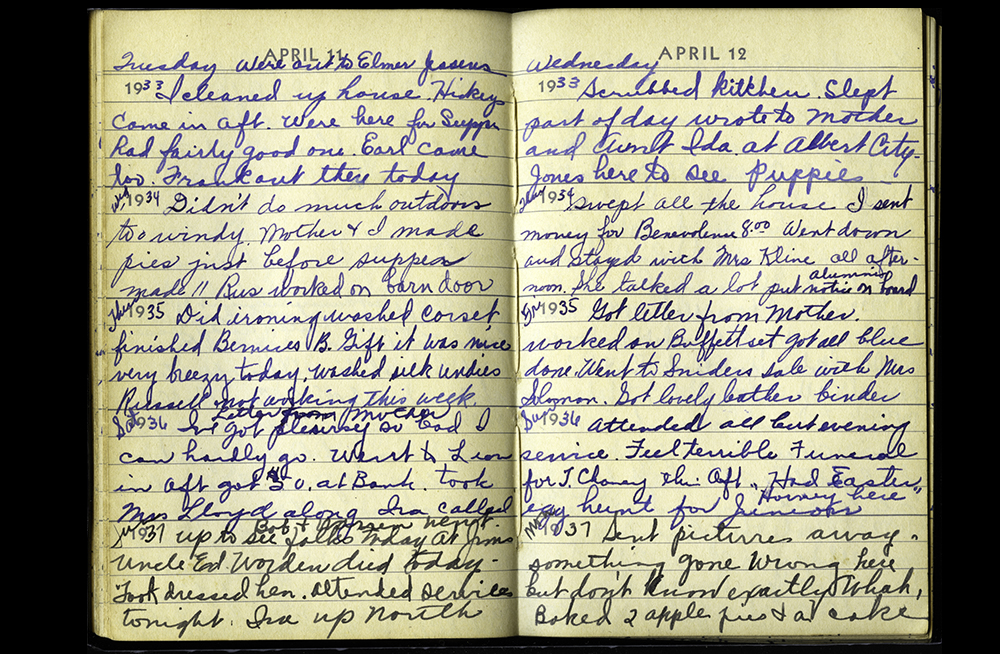 APRIL 11
Tuesday Were out to Elmer
1933 I cleaned up house. Hickeys
Came in aft. Were here for Supper
Had fairly good one. Earl came
too. Frank out there today
Wed 1934 Didn't do much outdoors
too windy. Mother & I made
pies just before supper
made 11 Rus worked on barn door
Thur 1935 Did ironing washed corset
finished Bernices B. Gift it was nice
very breezy today, washed silk undies
Russell not working this week.
Letter from Mother
Sat 1936 I've got pleurisy so bad I
can hardly go. Went to
in aft got at Bank. took
Mrs Lloyd along Ira called
Bob &
Su 1937 up to see folks today at Jims
Uncle Ed. Worden died today-
Took dressed hen. Attended services
tonight. Ira up North
APRIL 12
Wednesday
1933 Scrubbed kitchen. Slept
part of day wrote to Mother
and Aunt Ida. at Albert City-
Jones here to see Puppies
Thur 1934 Swept all the house I sent
money for Benevolence 8.00 Went down
and stayed with Mrs Kline all after-
noon. She talked a lot put alumni notice on board
Fri 1935 Got letter from Mother.
worked on Buffett set got all blue
done. Went to Sniders sale with Mrs
Solomon. Got lovely leather binder
Sun 1936 Attended all but evening
service. Feel terrible Funeral
for T. Chaney this Aft. " Had Easter
egg hunt for Juniors Harvey here"
Mon 1937 Sent pictures away.
something gone wrong here
but don't know exactly What,
Baked 2 apple pies & a cake